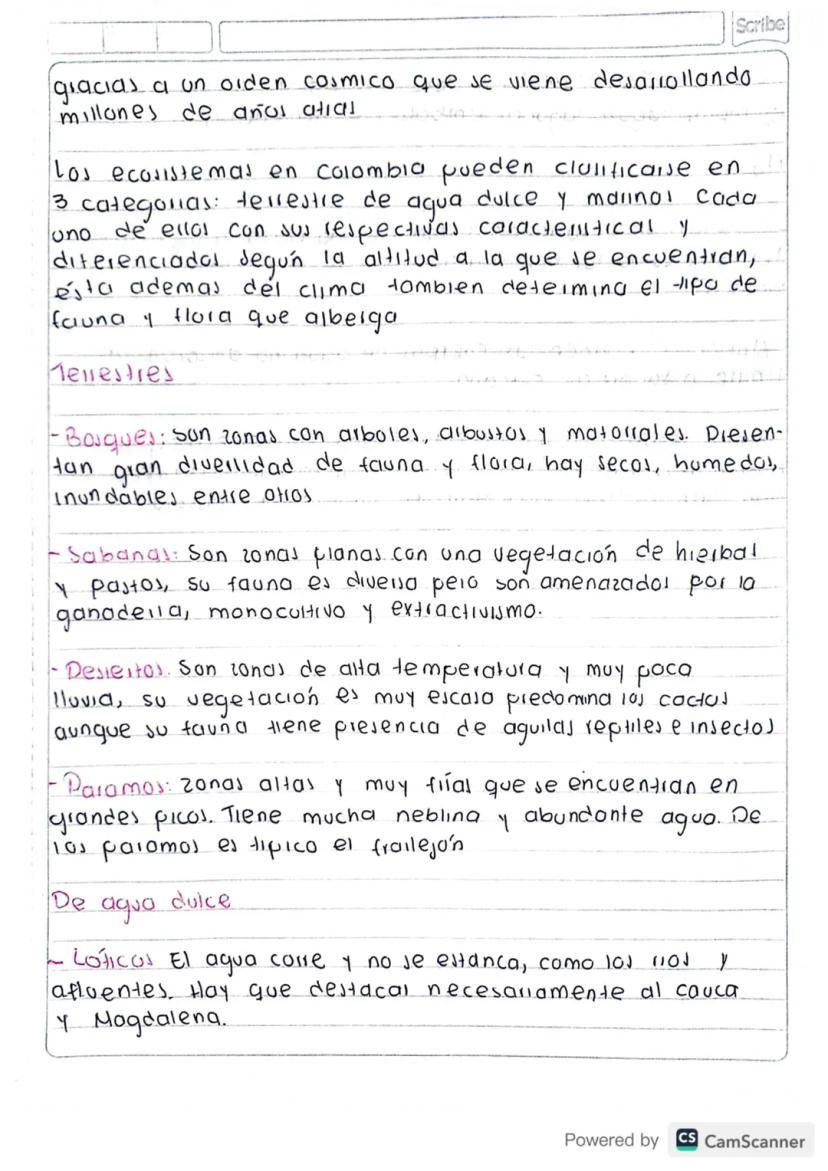 Scribe
gracias a un orden cosmico que se viene desarrollando
millones de años atras
Los ecosistemas en Colombia pueden clasificarse en
3 categorias: terrestre de agua dulce y marinos cada
uno de ellos con sus respectivas caracteristicas y
diferenciados según la altitud a la que se encuentran,
ésta ademas del clima tambien determina el tipo de
fauna y flora que alberga
Terrestres
- Bosques: Son zonas con arboles, arbustos y matorrales. Presen-
tan gran diversidad de fauna y flora, hay secos, humedos,
inundables entre otros
- Sabanas: Son zonas planas con una vegetación de hierbas
y pastos, su fauna es diversa pero son amenazados por la
ganaderia, monocultivo y extractivismo.
- Desiertos. Son zonas de alta temperatura y muy poca
lluvia, su vegetación es muy escasa predomina los cactus
aunque su fauna tiene presencia de aguilas reptiles e insectos
- Paramos: zonas altas y muy frías que se encuentran en
grandes picos. Tiene mucha neblina y abundante agua. De
los paramos es tipico el frailejón
De agua dulce
- Lóticos El agua corre y no se estanca, como los rios y
afluentes. Hay que destacar necesariamente al cauca
y Magdalena.
Powered by CS CamScanner